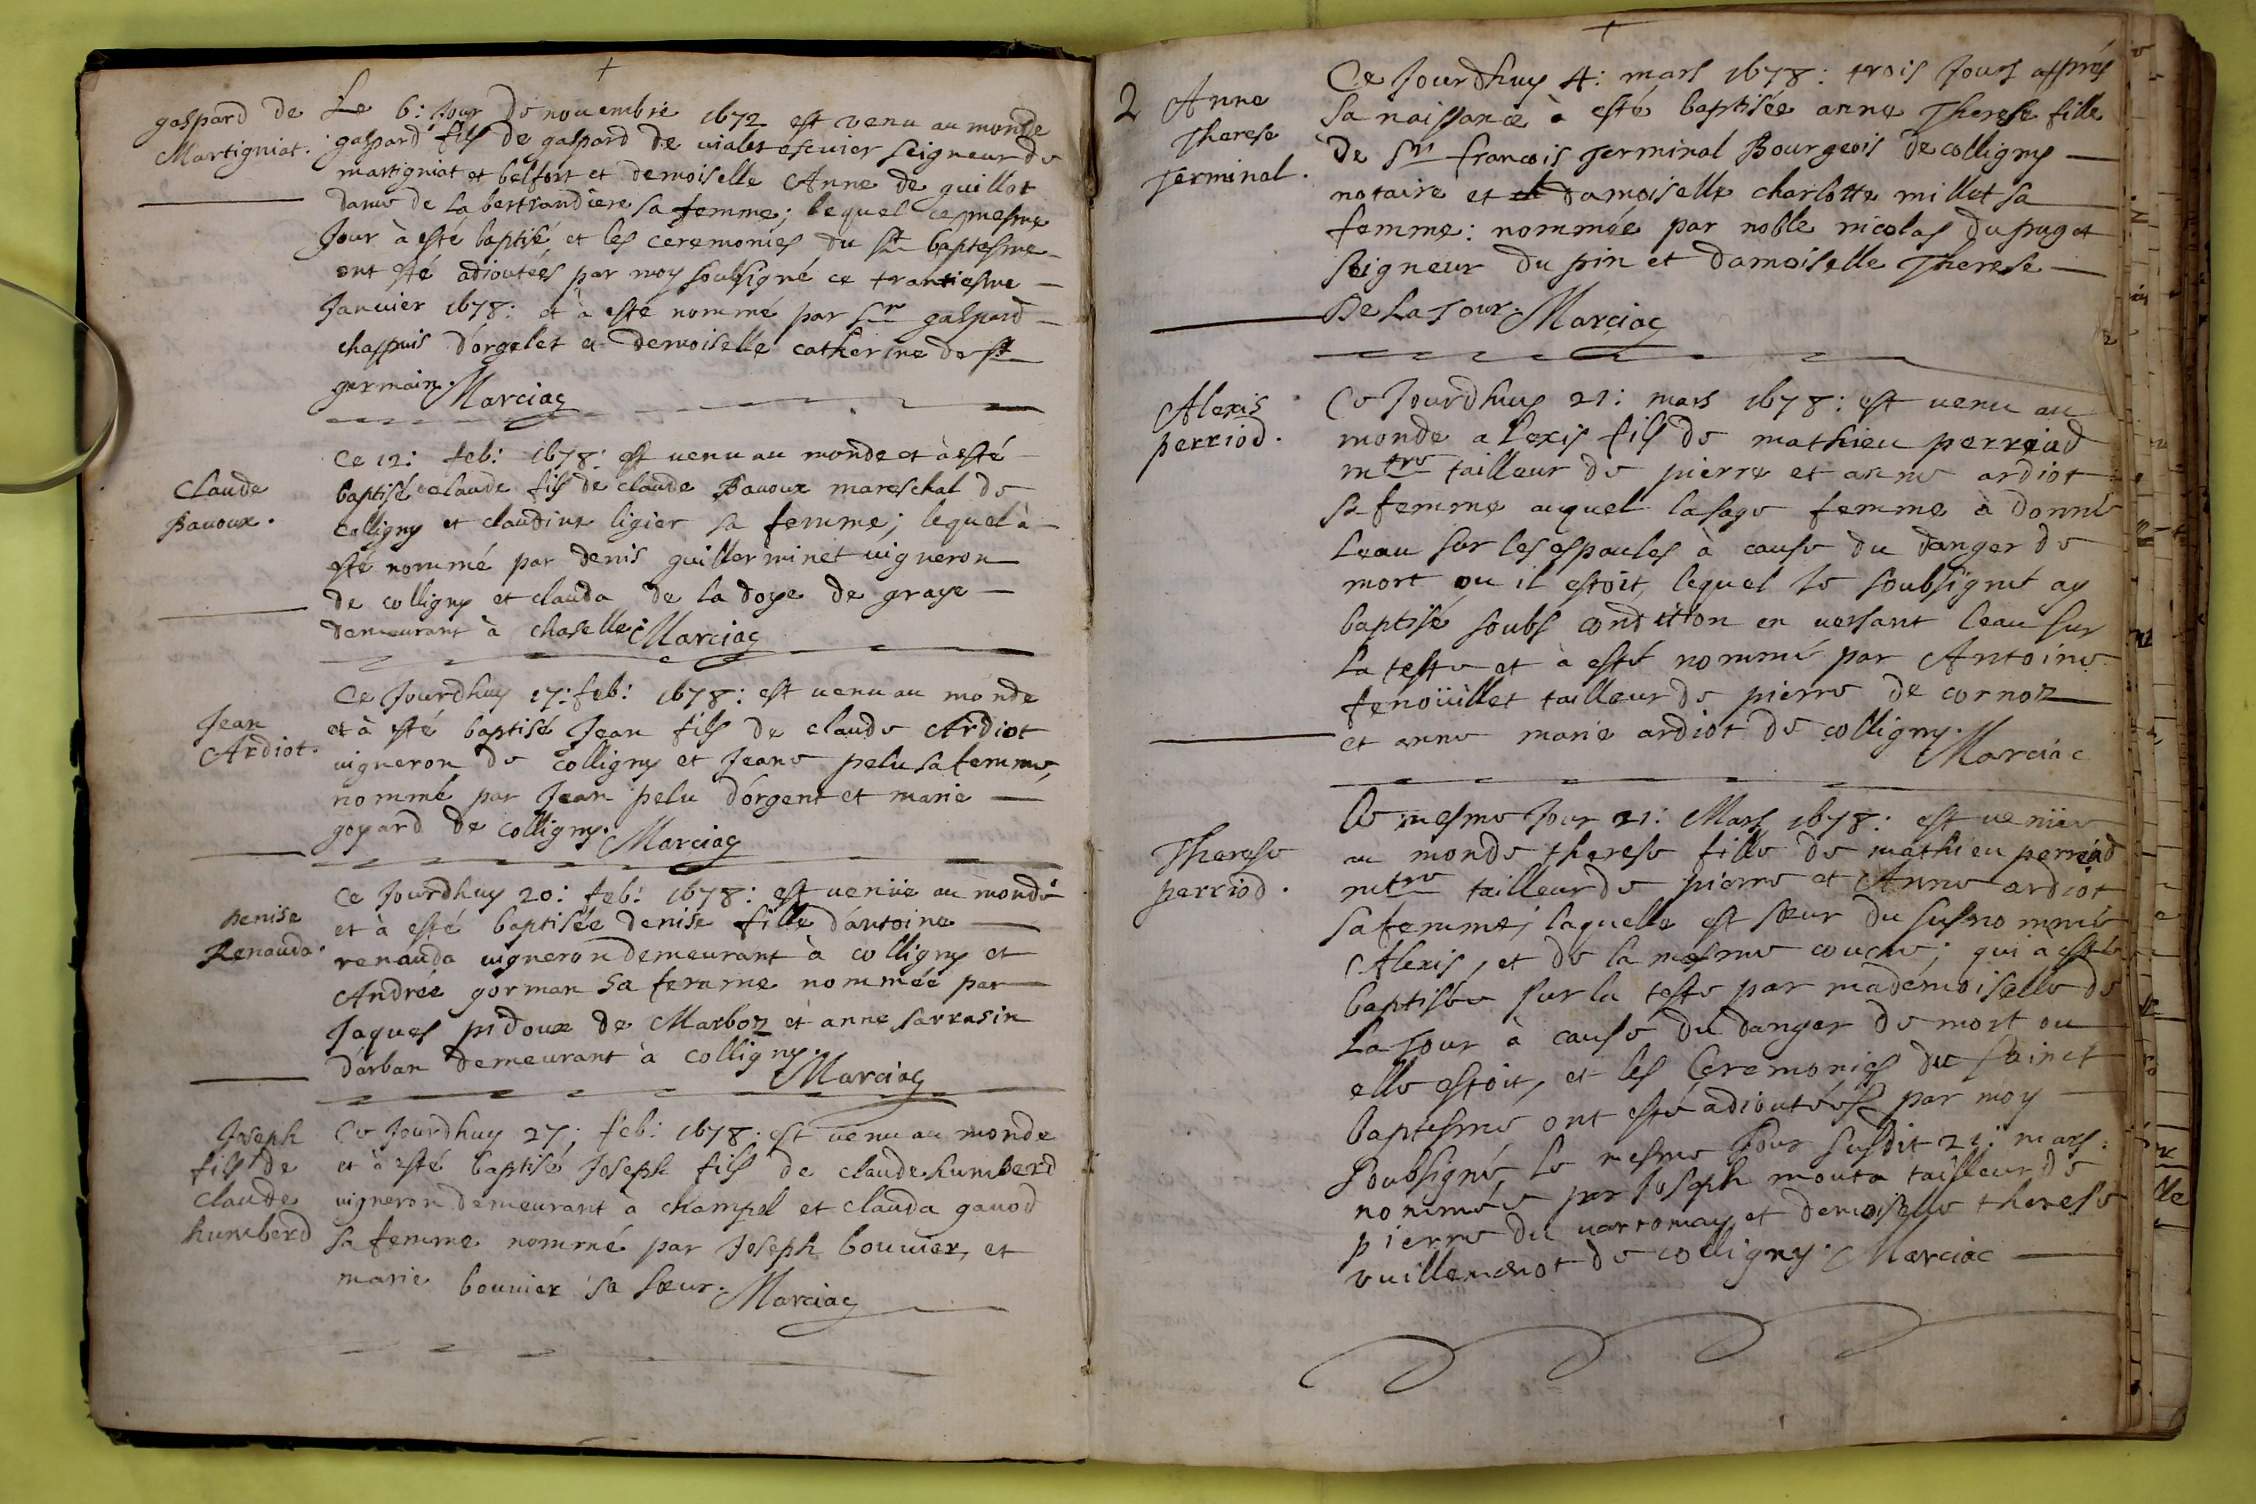 gaspard de
Martigniat.
Le 6: Jour de nouembre 1672 est venu au monde
gaspard fils de gaspard de uialet escuier seigneur de
martigniat et belfort et demoiselle Anne de guillot
dame de la bertrandiere sa femme; lequel ce mesme
Jour à esté baptisé et les ceremonies du st baptesme
ont esté adioutées par moy soubsigné ce trantiesme
Januier 1678: et à esté nommé par Sr gaspard
chappuis d'orgelet et demoiselle catherine de st
germain. Marciac
Claude
Pauoux.
Ce 12: feb: 1678: est uenu au monde et à esté
baptisé claude fils de claude Pauoux mareschal de
Colligny et claudine ligier sa femme; lequel à
esté nommé par denis guillerminet uigneron
de colligny et clauda de la doye de graye
demeurant à chaselle. Marciac
Jean
Ardiot.
Ce Jourdhuy 17: feb: 1678: est uenu au monde
et à esté baptisé Jean fils de claude Ardiot
uigneron de colligny et Jeane pelu sa femme,
nommé par Jean pelu d'orgent et marie
goyard de colligny. Marciac
Denise
Renauda.
Ce Jourdhuy 20: feb: 1678: est uenüe au monde
et à esté baptisée denise fille d'antoine
renauda uigneron demeurant à colligny et
Andrée gorman sa femme nommée par
Jaques pidoux de Marboz et anne sarrasin
d'arban demeurant à colligny.
Marciac
Joseph
fils de
claude
humberd
Ce Jourdhuy 27; feb: 1678: est uenu au monde
et à esté baptisé Joseph fils de claude humberd
uigneron demeurant à champel et clauda gauod
sa femme nommé par Joseph bouuier, et
marie bouuier sa sœur. Marciac
2
Anne
Therese
Terminal.
Ce Jourdhuy 4: mars 1678: trois Jours apprés
sa naissance à esté baptisée anne Therese fille
de Sr francois Terminal Bourgeois de colligny
notaire et damoiselle charlotte millet sa
femme: nommée par noble nicolas du puget
seigneur du pin et damoiselle Therese
De La Tour. Marciac
Alexis
perriod.
Ce Jourdhuy 21: mars 1678: est uenu au
monde alexis fils de mathieu perriod
mtre tailleur de pierre et anne ardiot
sa femme auquel la sage femme à donné
l'eau sur les espaules à cause du danger de
mort ou il estoit, lequel Je soubsigné ay
baptisé soubs condition en uersant leau sur
la teste et à esté nommé par Antoine
fenoüillet tailleur de pierre de cornoz
et anne marie ardiot de colligny.
Marciac
Therese
perriod.
Ce mesme Jour 21: Mars 1678: est uenüe
au monde therese fille de mathieu perriod
mtre tailleur de pierre et Anne ardiot
sa femme; laquelle est sœur du susnommé
Alexis, et de la mesme couche; qui à esté
baptisée sur la teste par mademoiselle de
La Tour à cause du danger de mort ou
elle estoit, et les Ceremonies du sainct
baptesme ont esté adioutées par moy
soubsigné, le mesme Jour susdit 21: mars:
nommée par Joseph mouta tailleur de
pierre du uarromay et demoiselle therese
vuillemenot de colligny. Marciac